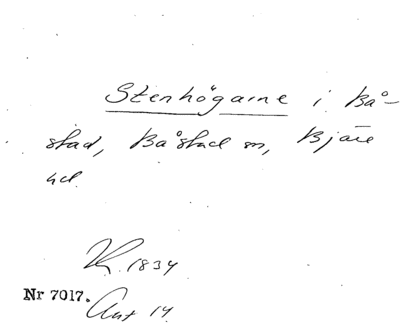 Stenhögarne i Bå-
stad, Båstad sn, Bjäre
hd
1834
Nr 7017.
Ant 14